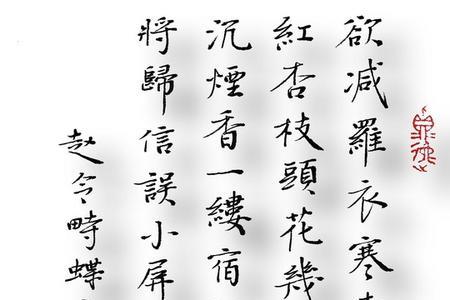 欲減羅衣寒
紅杏枝頭花幾
沉煙香一縷宿
將歸信誤小屏
赵令畤蝶